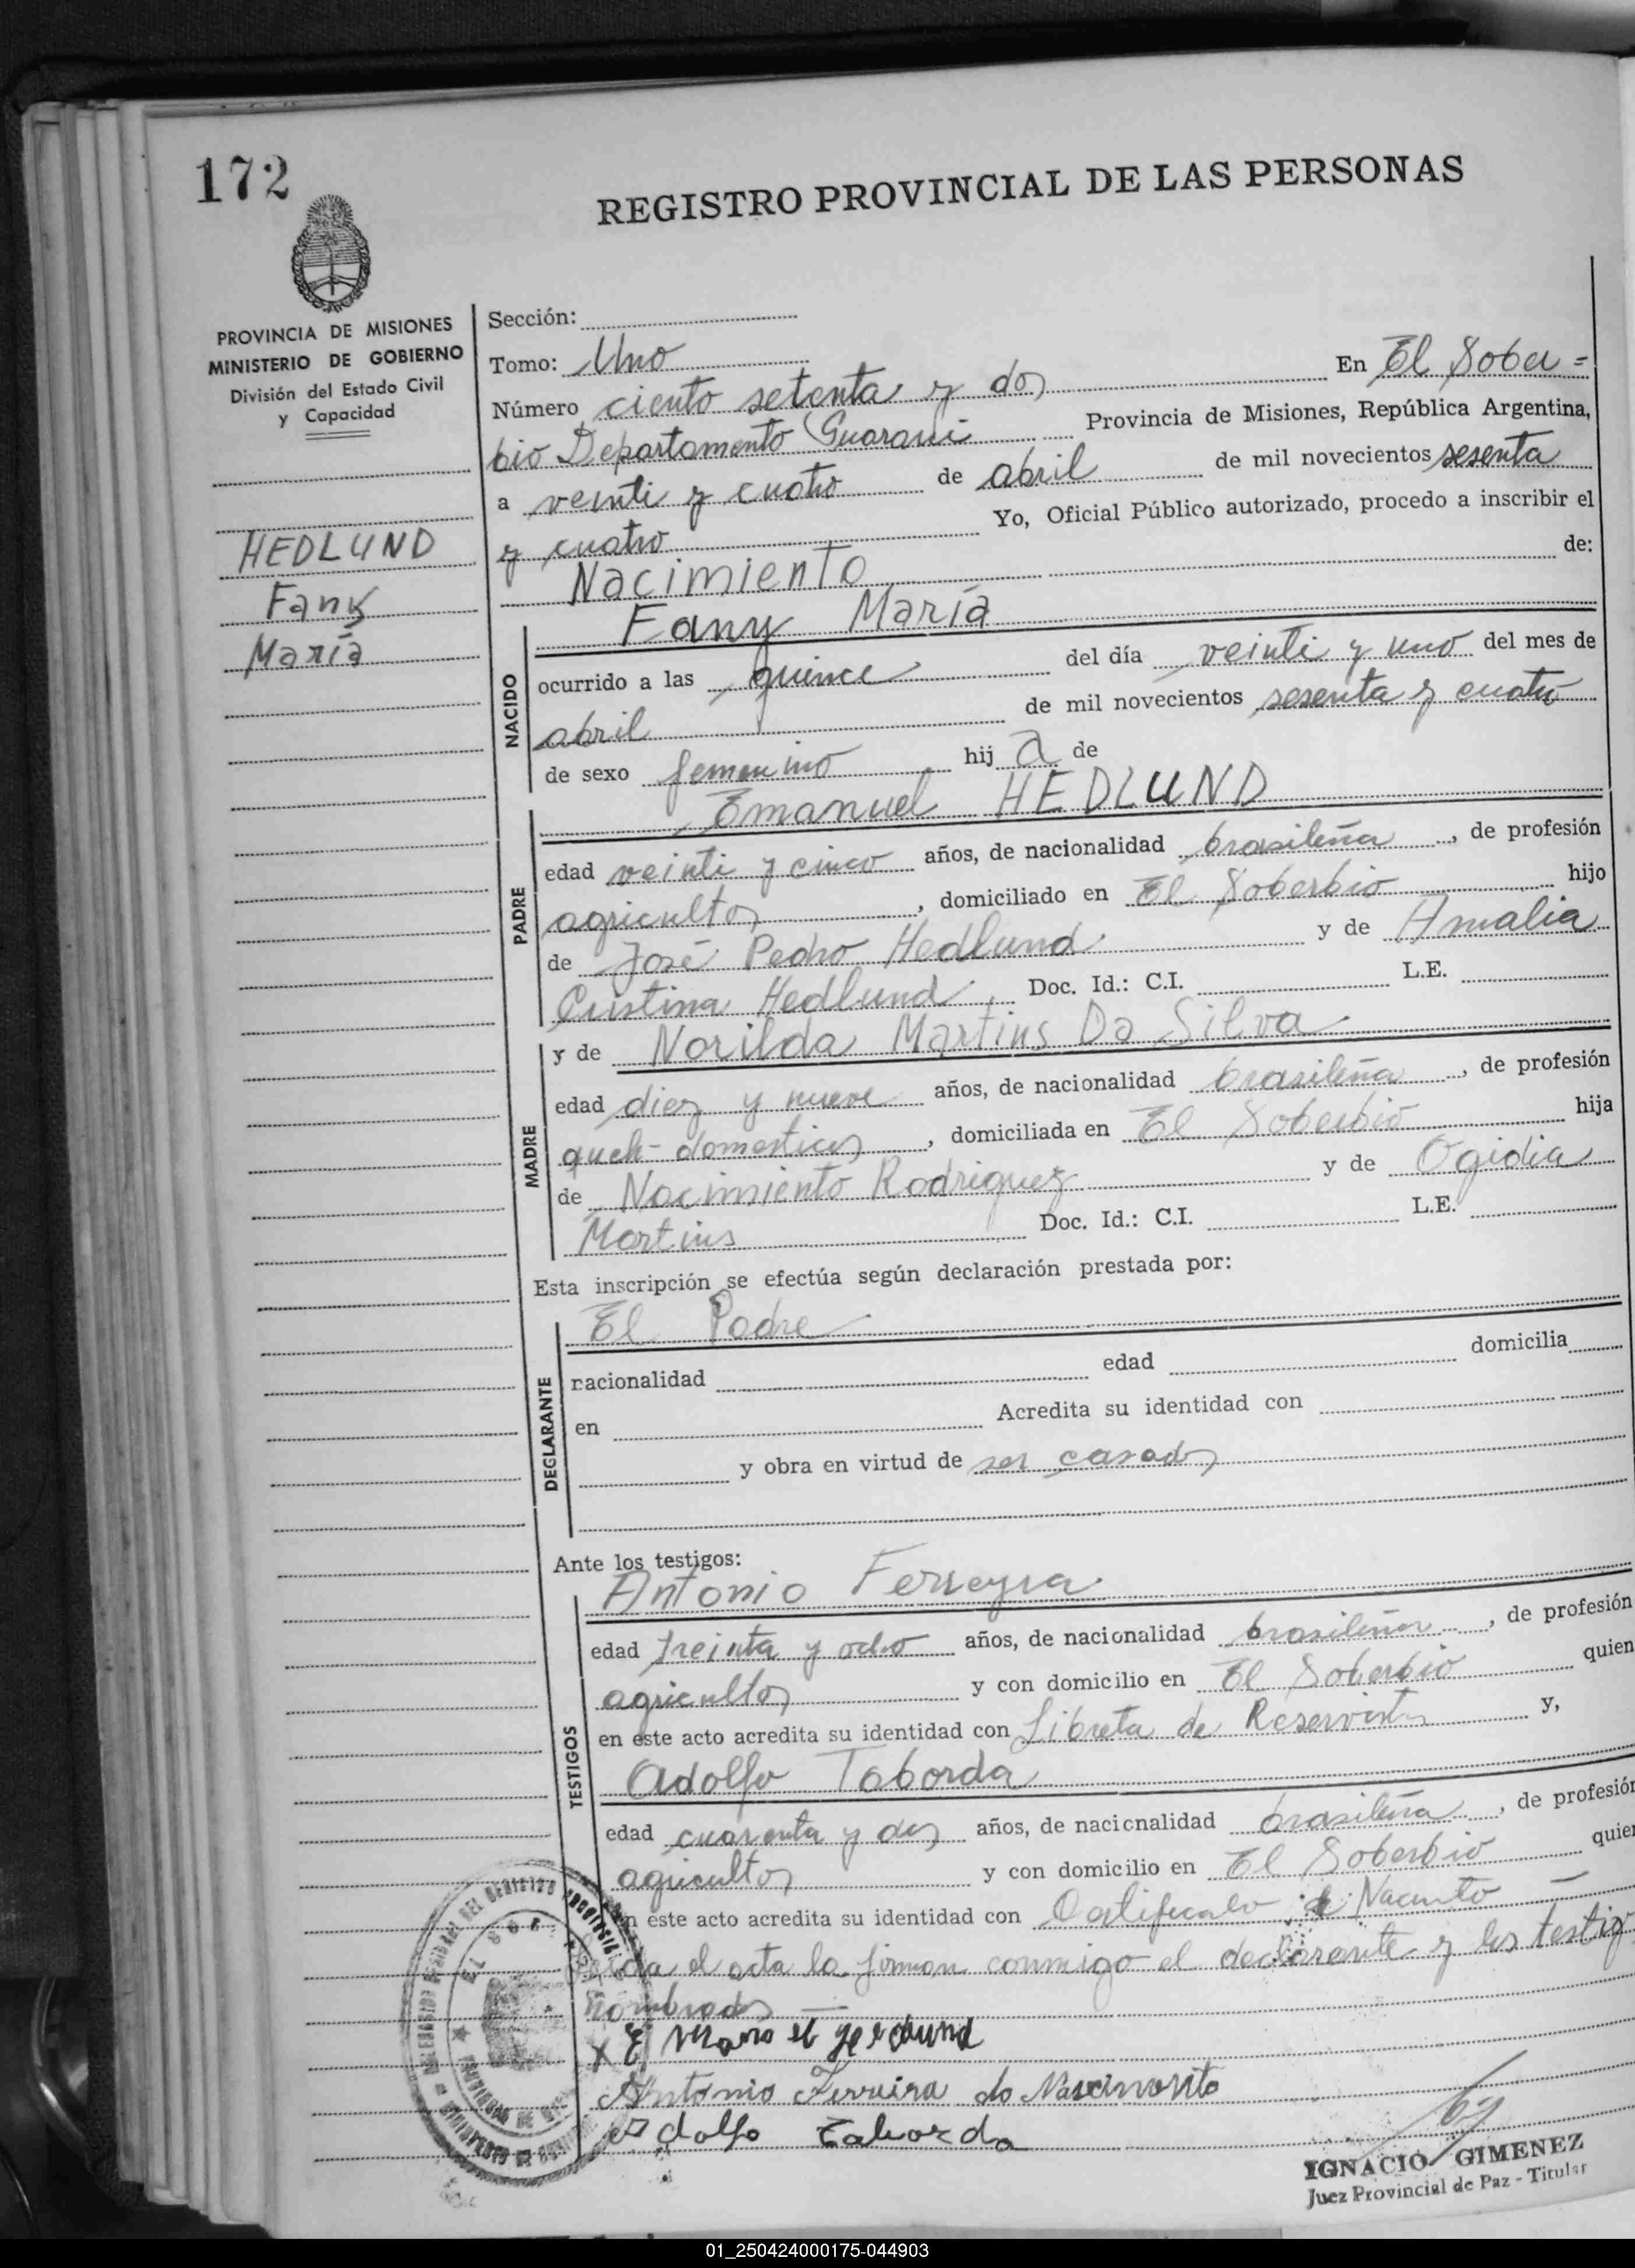 172
REGISTRO PROVINCIAL DE LAS PERSONAS
PROVINCIA DE MISIONES
MINISTERIO DE GOBIERNO
División del Estado Civil
y Capacidad
HEDLUND
Fany
María
Sección:
Tomo: Uno
Número ciento setenta y dos En El Sober=
bio Departamento Guaraní Provincia de Misiones, República Argentina,
a veinti y cuatro de abril de mil novecientos sesenta
y cuatro Yo, Oficial Público autorizado, procedo a inscribir el
Nacimiento de:
NACIDO
Fany María
ocurrido a las quince del día veinti y uno del mes de
abril de mil novecientos sesenta y cuatro
de sexo femenino hij a de
PADRE
Emanuel HEDLUND
edad veinti y cinco años, de nacionalidad brasileña, de profesión
agricultor, domiciliado en El Soberbio hijo
de José Pedro Hedlund y de Amalia
Cristina Hedlund, Doc. Id.: C.I. L.E.
MADRE
y de Norilda Martins Da Silva
edad diez y nueve años, de nacionalidad brasileña, de profesión
queh- domesticos, domiciliada en El Soberbio hija
de Nacimiento Rodriguez y de Ogidia
Martins Doc. Id.: C.I. L.E.
Esta inscripción se efectúa según declaración prestada por:
DECLARANTE
El Padre
nacionalidad edad domicilia
en Acredita su identidad con
y obra en virtud de ser casado
Ante los testigos:
TESTIGOS
Antonio Ferreyra
edad treinta y ocho años, de nacionalidad brasileña, de profesión
agricultor y con domicilio en El Soberbio quien
en este acto acredita su identidad con Libreta de Reservista y,
Adolfo Taborda
edad cuarenta y dos años, de nacionalidad brasileña, de profesión
agricultor y con domicilio en El Soberbio quien
en este acto acredita su identidad con Certificado de Nacimto
Leida el acta la firman conmigo el declarante y los testig
nombrados
Antonio Ferreira do Nascimento
Adolfo Taborda
IGNACIO GIMENEZ
Juez Provincial de Paz - Titular
01_250424000175-044903